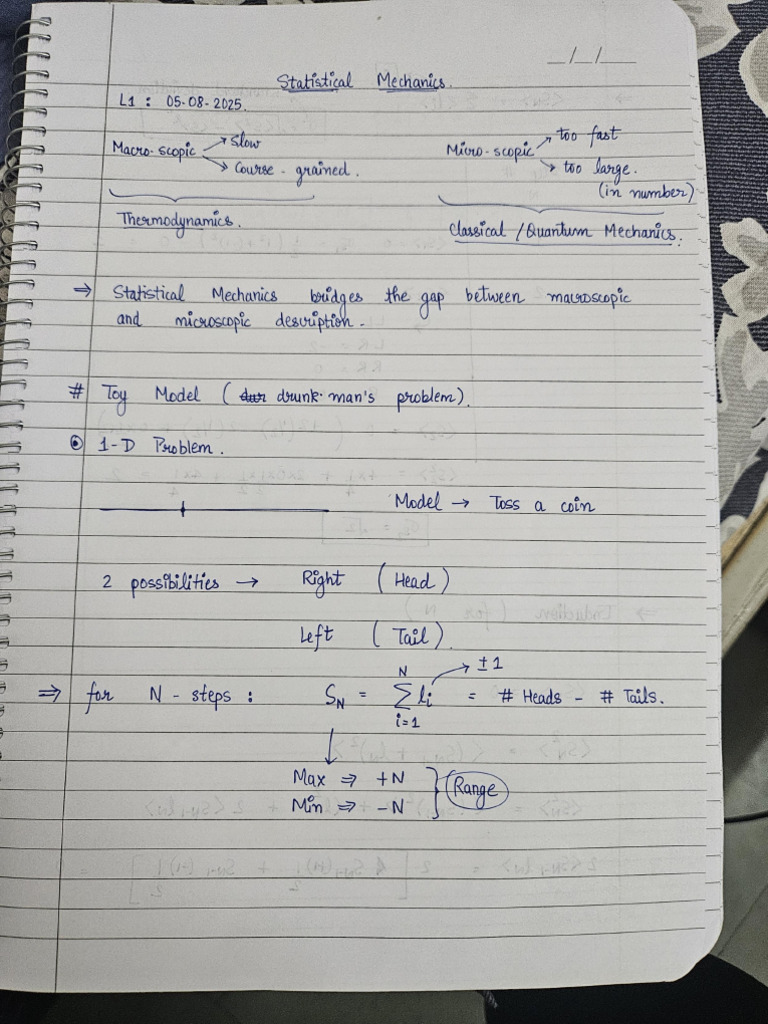 _/_/__
Statistical Mechanics.
L1 : 05-08-2025.
Macro-scopic → Slow
→ Course-grained.
Micro-scopic → too fast
→ too large.
(in number)
Thermodynamics.
Classical / Quantum Mechanics.
⇒ Statistical Mechanics bridges the gap between macroscopic
and microscopic description.
# Toy Model ( drunk-man's problem).
⊙ 1-D Problem.
Model → Toss a coin
2 possibilities → Right (Head)
Left (Tail).
⇒ for N-steps : S_N = ∑_{i=1}^{N} l_i → ±1 = # Heads - # Tails.
↓
Max ⇒ +N
Min ⇒ -N } Range